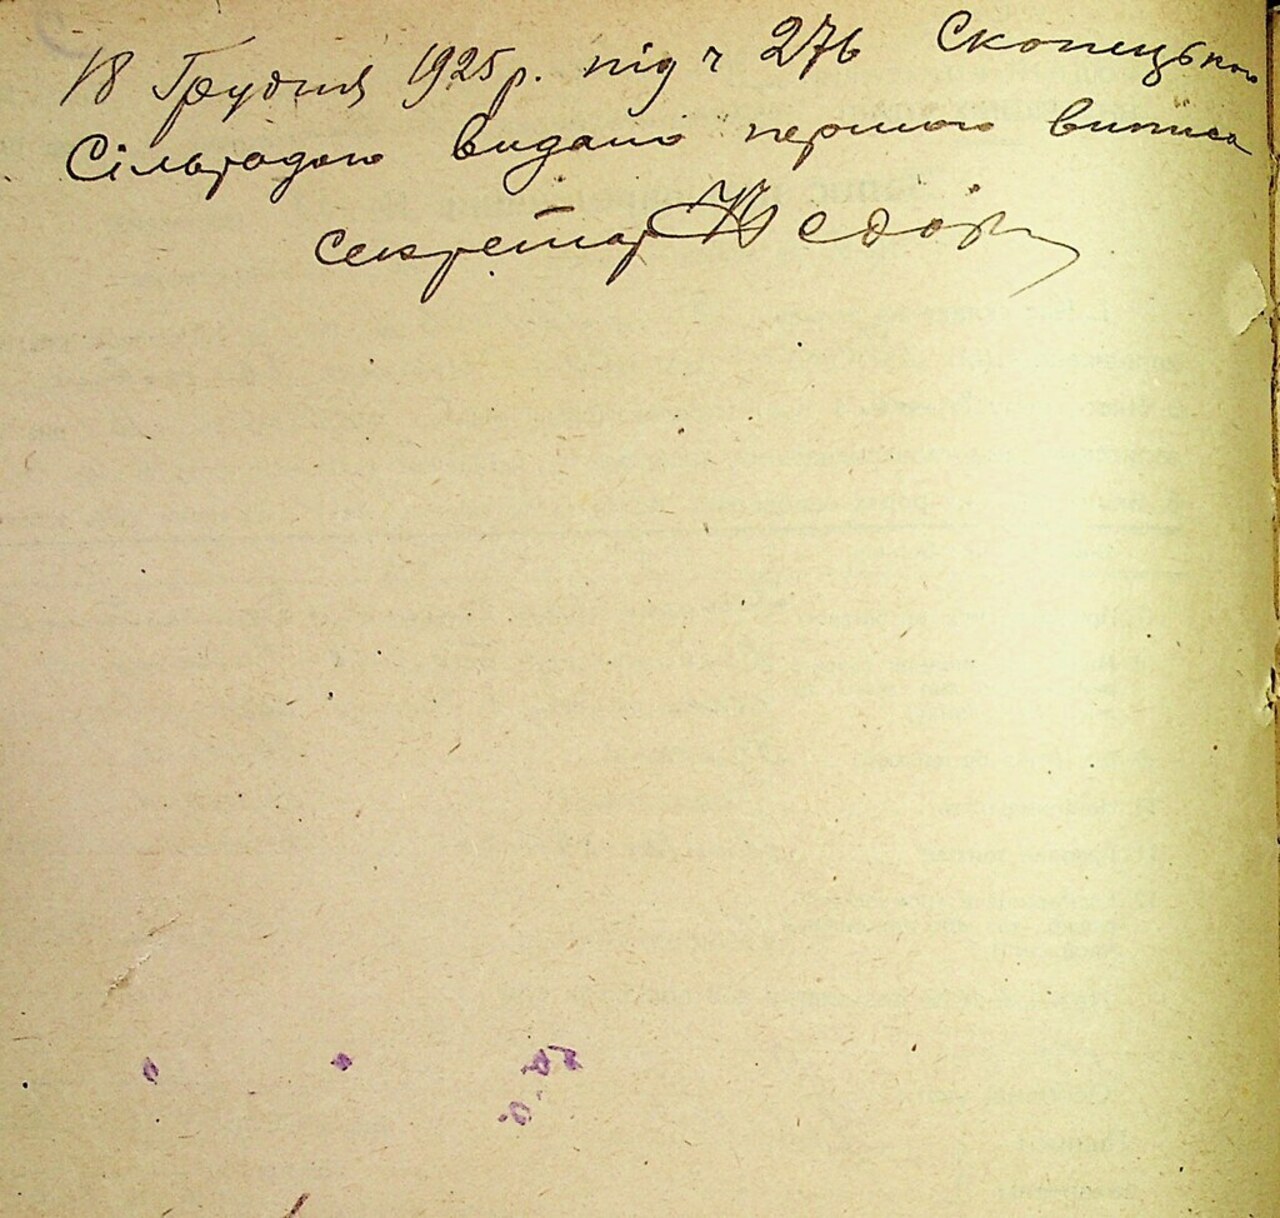 18 Грудня 1925 р. під ч 276 Скопецькою
Сільрадою видано першого виписа
секретар